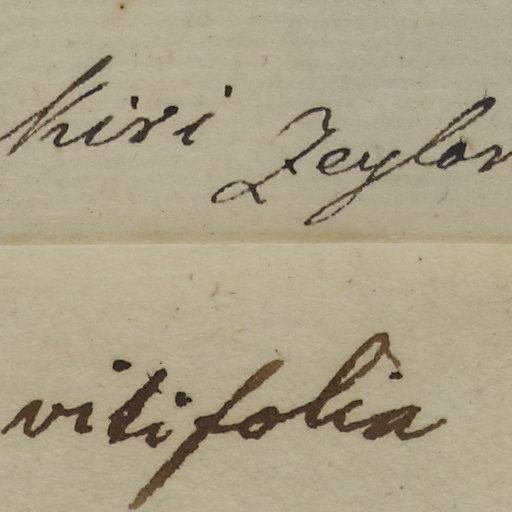 kiri Zeylon
vitifolia